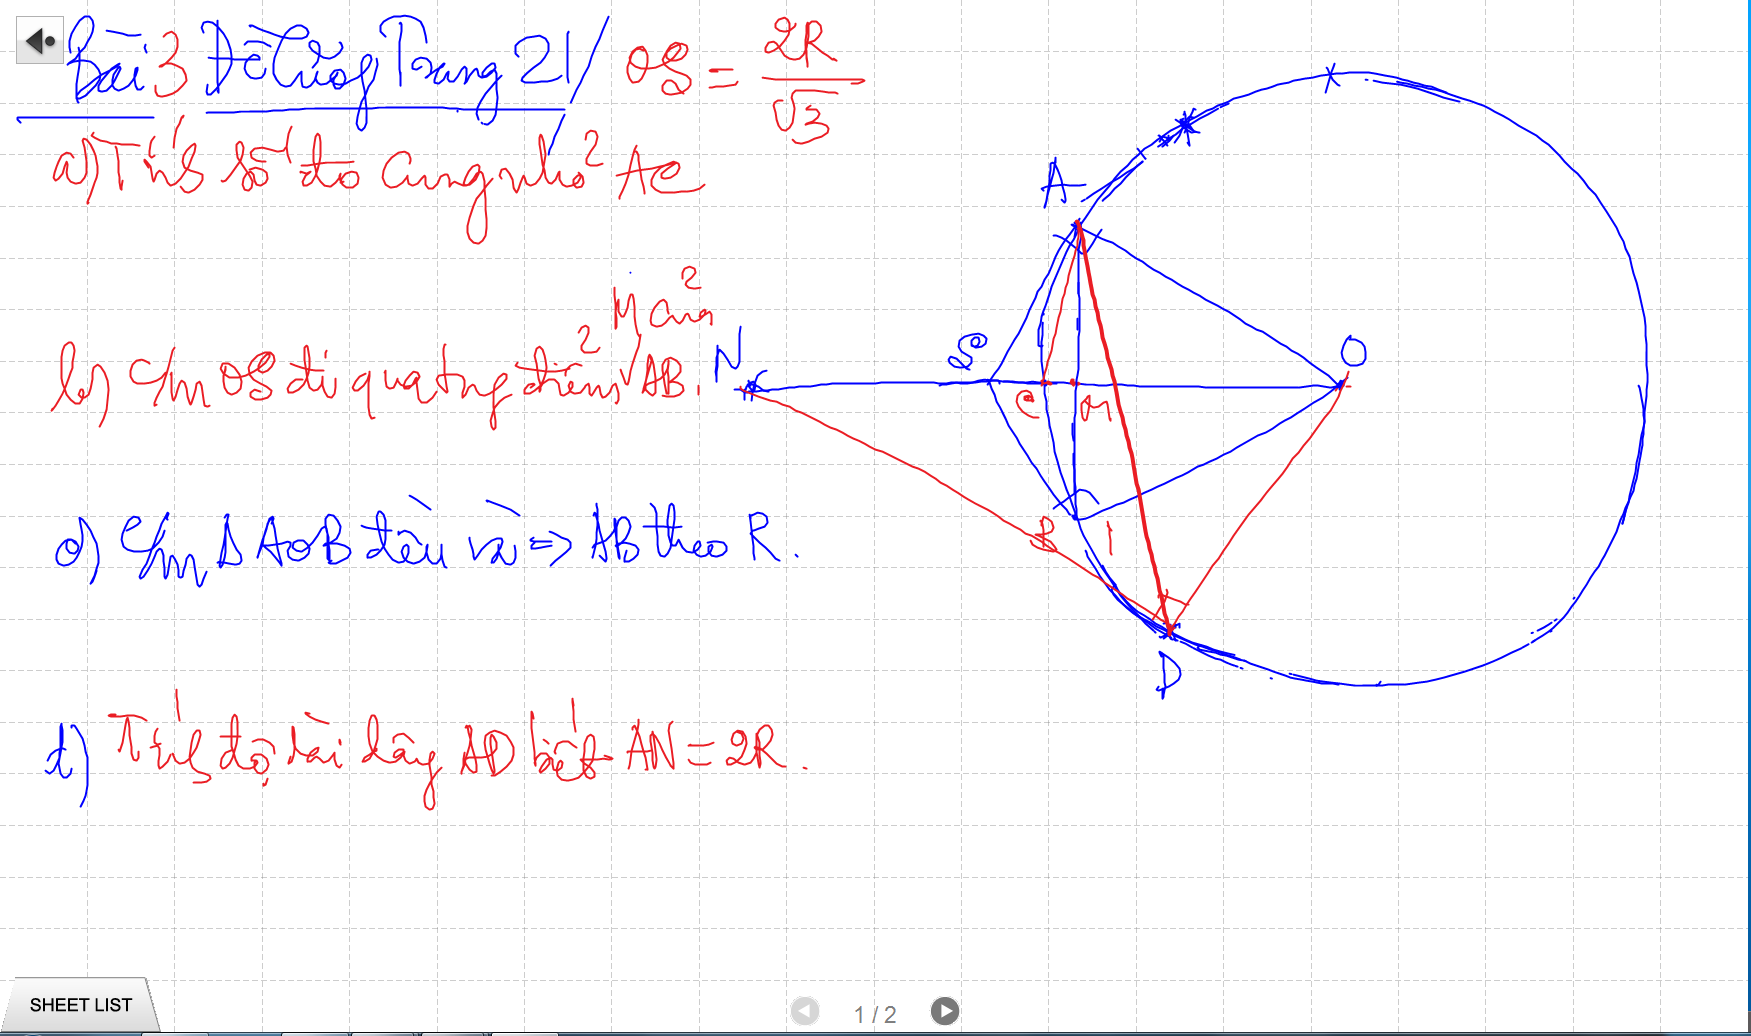 Bài 3 Đề Cương Trang 21/ OS = 2R/√3
a) Tính số đo cung nhỏ AC
b) C/m OS đi qua trung điểm M của AB.
c) C/m Δ AOB đều và => AB theo R.
d) Tính độ dài dây AD biết AN = 2R.
A
N
S
O
C
M
B
D
SHEET LIST
1 / 2